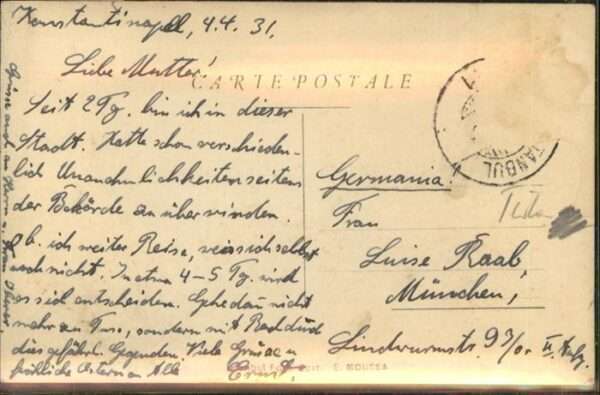 Konstantinopel, 4.4.31.
Liebe Mutter!
CARTE POSTALE
Seit 2 Tg. bin ich in dieser
Stadt. Hatte schon verschieden-
lich Unannehmlichkeiten seitens
der Behörde zu überwinden.
Ob ich weiter Reise, weiss ich selbst
noch nicht. In etwa 4-5 Tg. wird
es sich entscheiden. Gehe dan nicht
mehr zu Fuss, sondern mit Rad durch
die gefährl. Gegenden. Viele Grüsse u
fröhliche Ostern an Alle
Ernst.
Grüsse auch an Herrn u. Frau
TANBUL
Germania!
Frau
Luise Raab,
München,
Lindwurmstr. 93/0. II.
E. MOUSSA